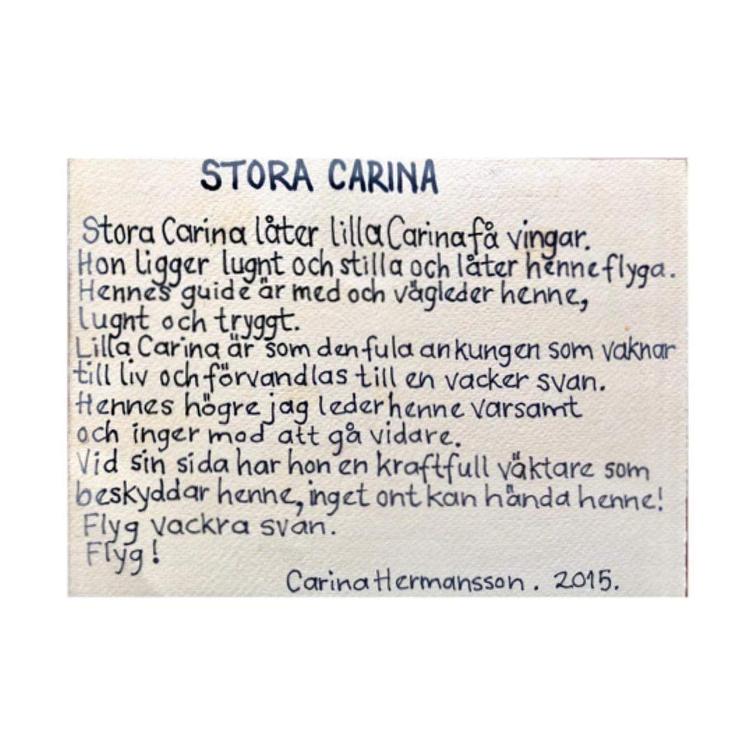 STORA CARINA
Stora Carina låter lilla Carina få vingar.
Hon ligger lugnt och stilla och låter henne flyga.
Hennes guide är med och vägleder henne,
lugnt och tryggt.
Lilla Carina är som den fula ankungen som vaknar
till liv och förvandlas till en vacker svan.
Hennes högre jag leder henne varsamt
och inger mod att gå vidare.
Vid sin sida har hon en kraftfull väktare som
beskyddar henne, inget ont kan hända henne!
Flyg vackra svan.
Flyg!
Carina Hermansson. 2015.